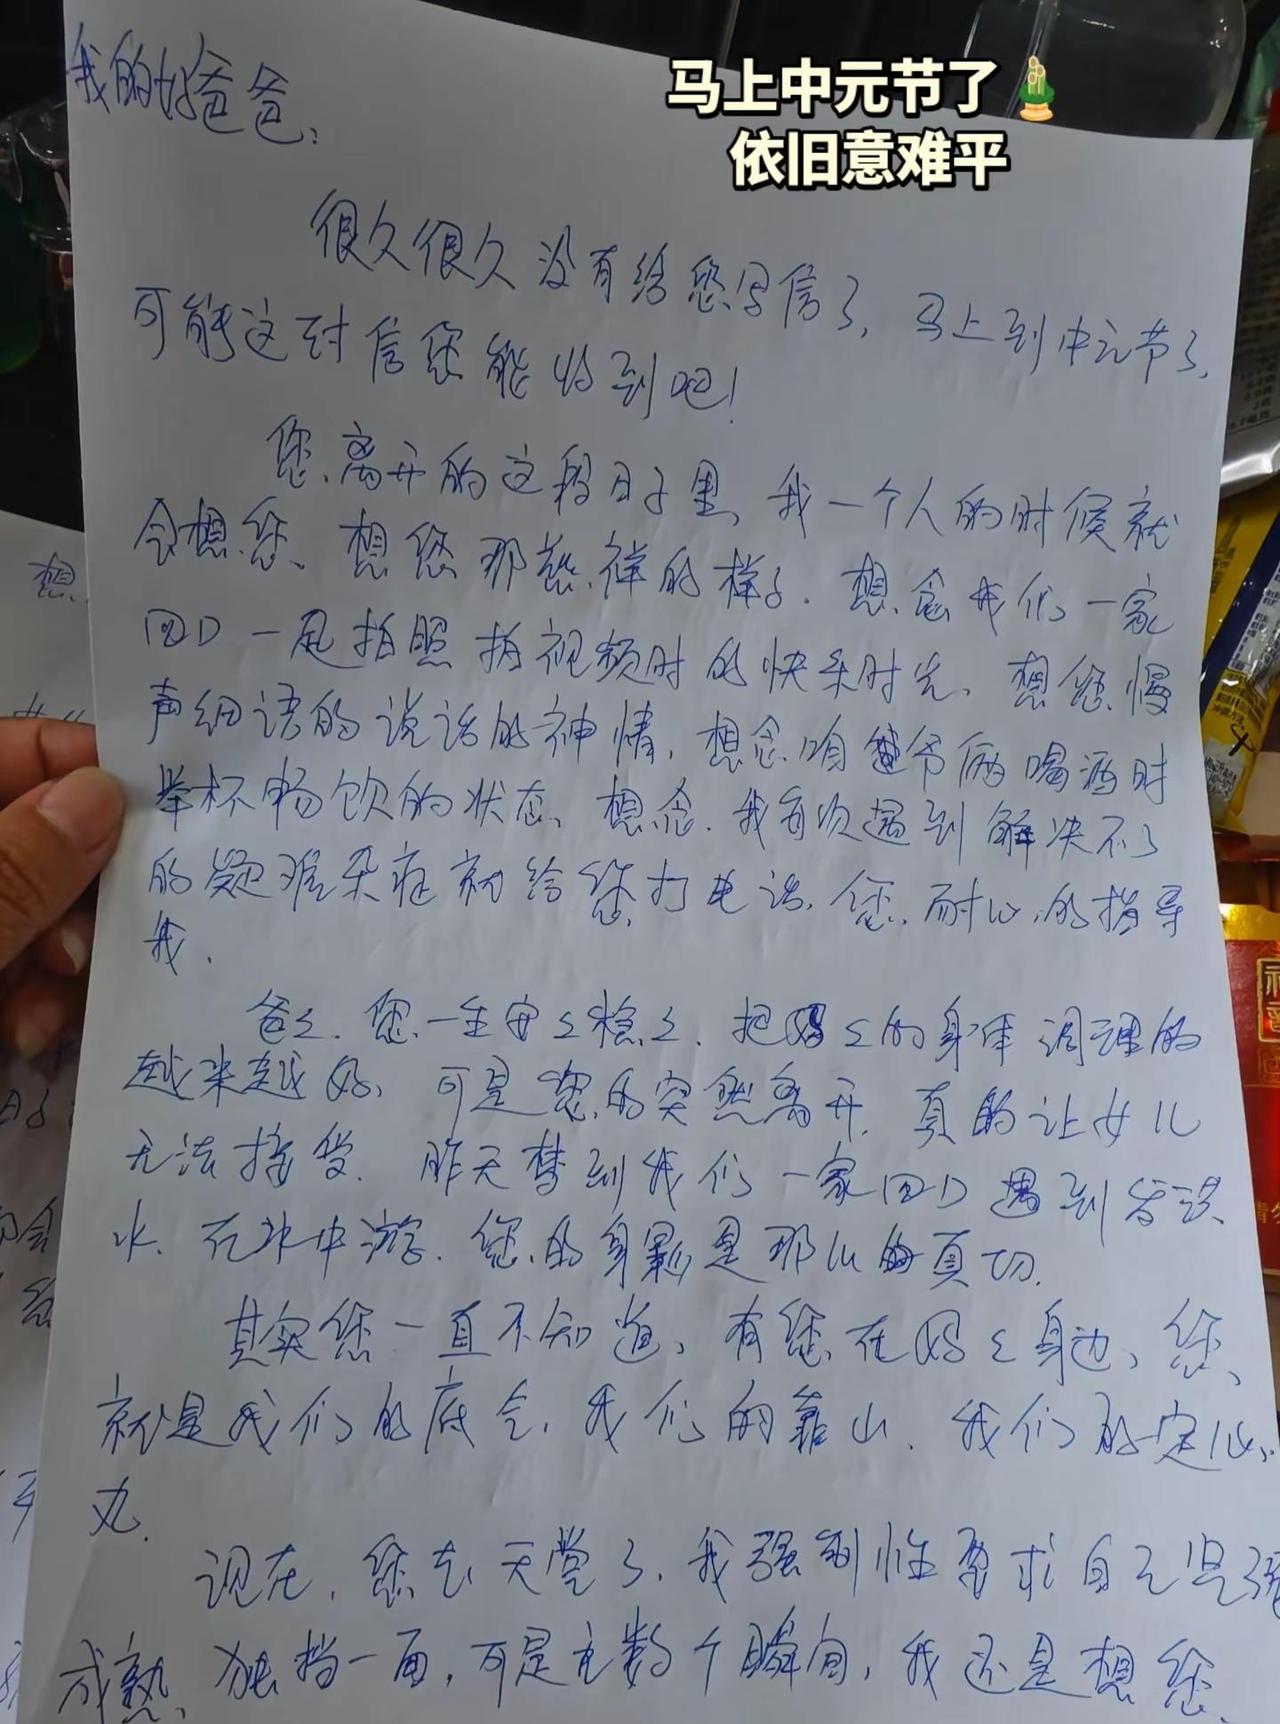 马上中元节了
依旧意难平
我的好爸爸:
很久很久没有给您写信了,马上到中元节了,
可能这封信您能收到吧!
您离开的这段日子里,我一个人的时候就
会想您、想您那慈祥的样子.想念我们一家
四口一起拍照拍视频时的快乐时光,想您慢
声细语的说话的神情,想念咱爷俩喝酒时
举杯畅饮的状态、想念.我每次遇到解决不了
的疑难杂症就给您打电话,您耐心的指导
我.
爸爸.您一生安安稳稳.把妈妈的身体调理的
越来越好,可是您的突然离开,真的让女儿
无法接受.昨天梦到我们一家四口遇到发洪
水.在水中游.您的身影是那么的真切.
其实您一直不知道,有您在妈妈身边、您、
就是我们的底气,我们的靠山、我们的定心
丸.
现在,您去天堂了,我强制性要求自己坚强
成熟、独挡一面,可是无数个瞬间,我还是想您.
想